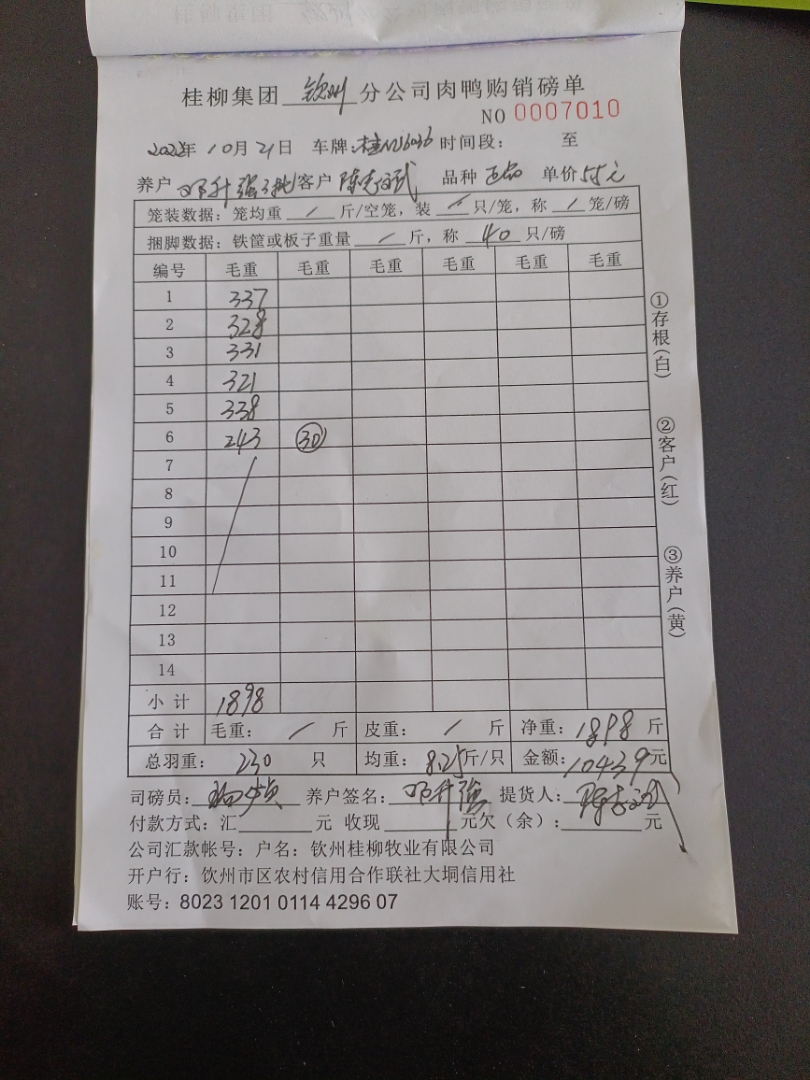 桂柳集团 钦州 分公司肉鸭购销磅单
NO 0007010
2022年 10月 21日 车牌: 时间段: 至
养户 邓升强 客户 陈志武 品种 正品 单价 5.5元
笼装数据: 笼均重 / 斤/空笼, 装 / 只/笼, 称 / 笼/磅
捆脚数据: 铁筐或板子重量 / 斤, 称 40 只/磅
编号 毛重 毛重 毛重 毛重 毛重 毛重
1 337
2 328
3 331
4 321
5 338
6 243 30
7
8
9
10
11
12
13
14
小计 1898
合计 毛重: / 斤 皮重: / 斤 净重: 1898 斤
总羽重: 230 只 均重: 8.25斤/只 金额: 10439元
司磅员: 养户签名: 邓升强 提货人:
付款方式: 汇 元 收现 元欠(余): 元
公司汇款帐号: 户名: 钦州桂柳牧业有限公司
开户行: 饮州市区农村信用合作联社大垌信用社
账号: 8023 1201 0114 4296 07
①存根(白)
②客户(红)
③养户(黄)